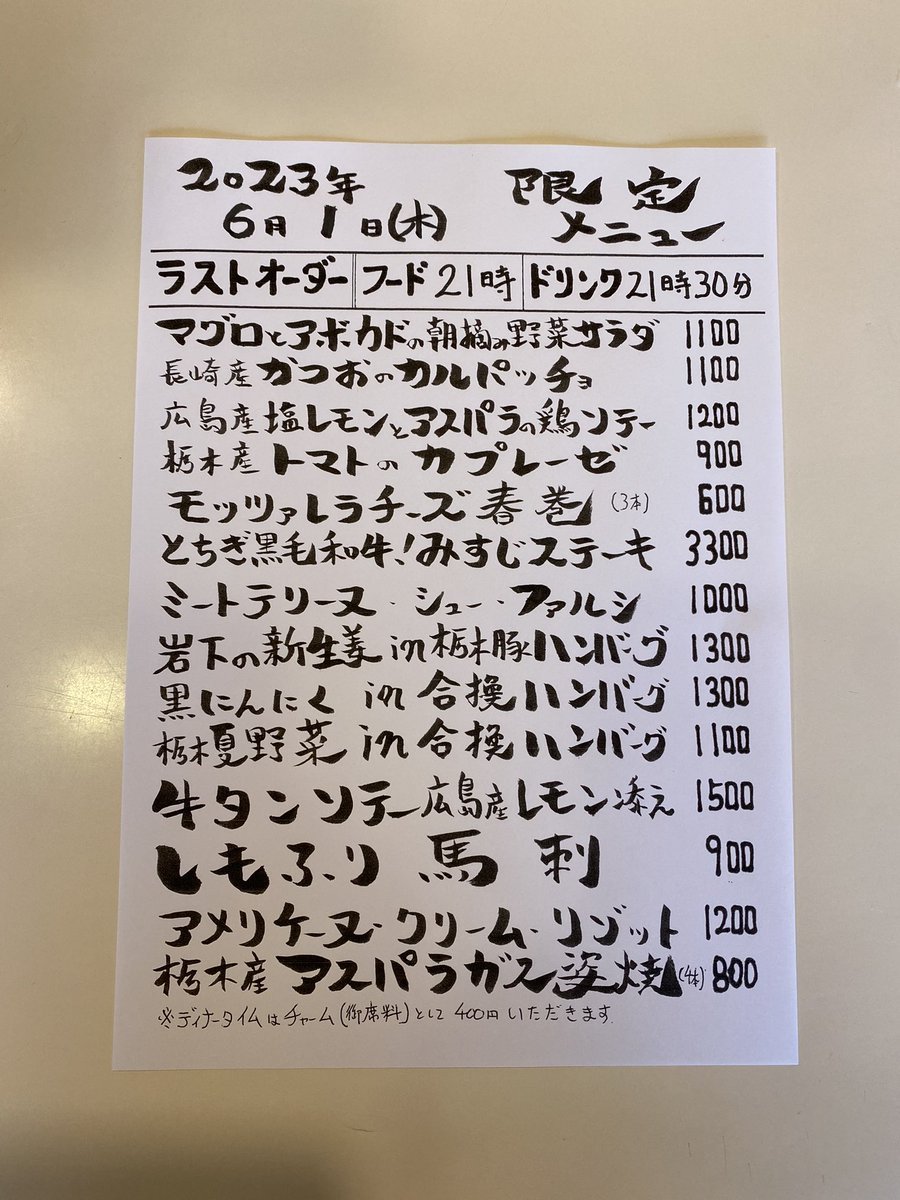 2023年 限定
6月1日(木) メニュー
ラストオーダー フード21時 ドリンク21時30分
マグロとアボカドの朝摘み野菜サラダ 1100
長崎産かつおのカルパッチョ 1100
広島産塩レモンとアスパラの鶏ソテー 1200
栃木産トマトのカプレーゼ 900
モッツァレラチーズ春巻(3本) 600
とちぎ黒毛和牛!みすじステーキ 3300
ミートテリーヌ・シュー・ファルシ 1000
岩下の新生姜in栃木豚ハンバーグ 1300
黒にんにくin合挽ハンバーグ 1300
栃木夏野菜in合挽ハンバーグ 1100
牛タンソテー広島産レモン添え 1500
しもふり馬刺 900
アメリケーヌ・クリーム・リゾット 1200
栃木産アスパラガス姿焼(4本) 800
※ディナータイムはチャーム(御席料)として400円いただきます.